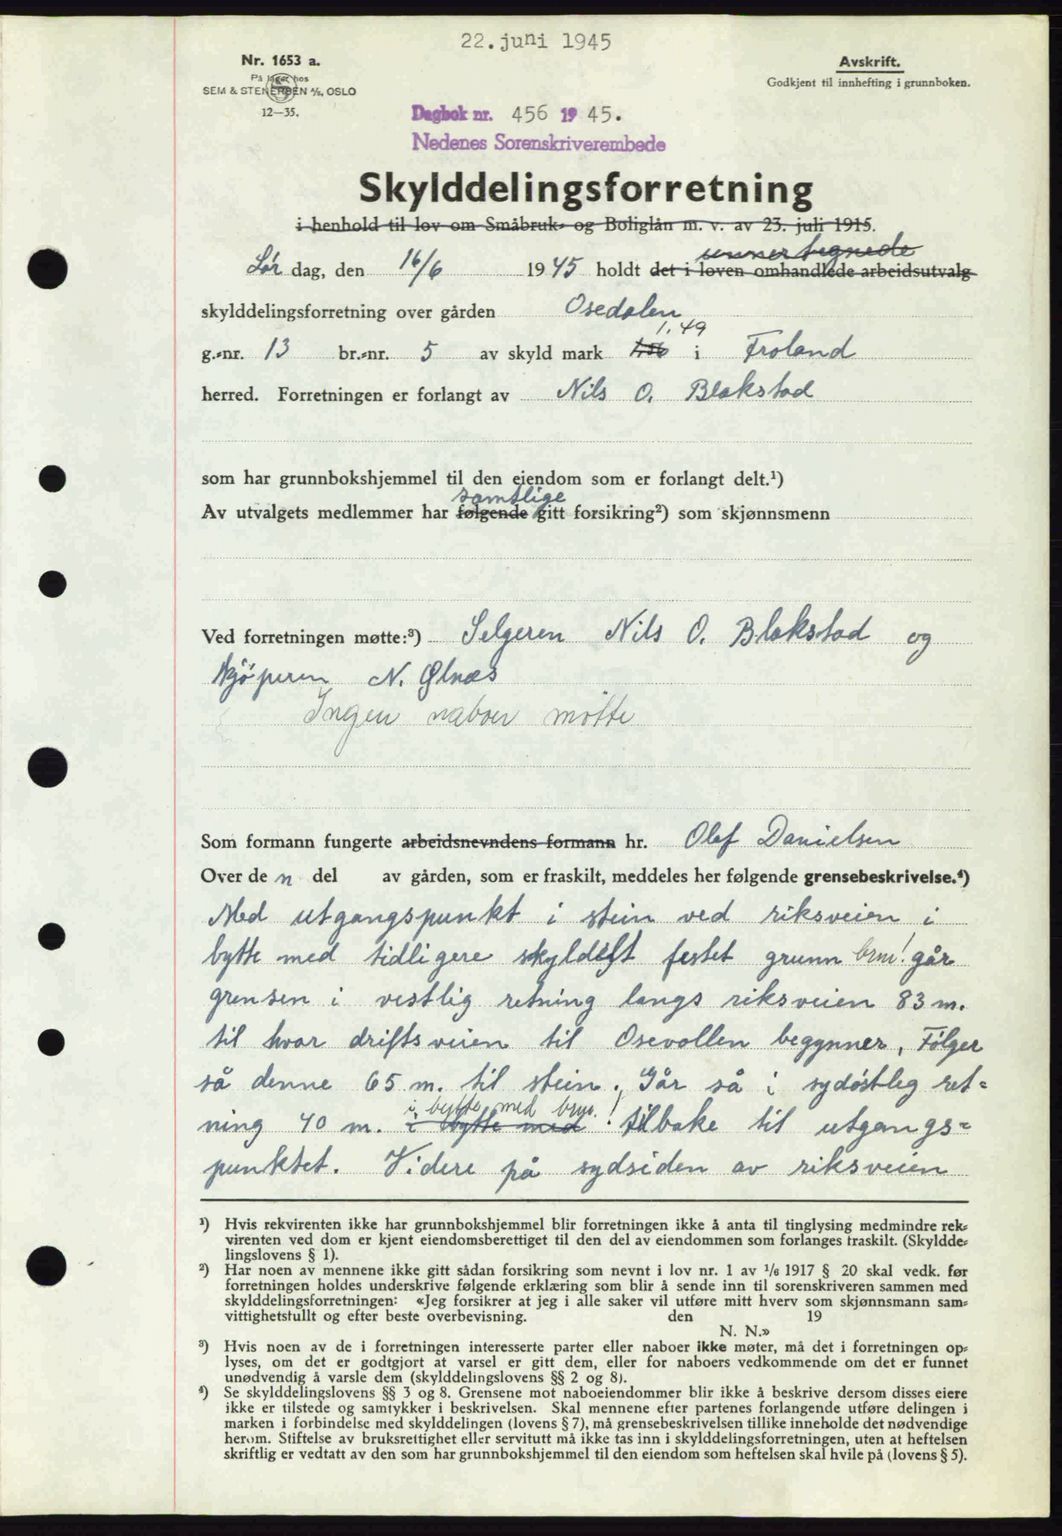 22. juni 1945
Nr. 1653 a.
På lager hos
SEM & STENERSEN A/S, OSLO
12—35.
Avskrift.
Godkjent til innhefting i grunnboken.
Dagbok nr. 456 1945.
Nedenes Sorenskriverembede
Skylddelingsforretning
i henhold til lov om Småbruk- og Boliglån m. v. av 23. juli 1915.
undertegnede
Lør dag, den 16/6 1945 holdt det i loven omhandlede arbeidsutvalg
skylddelingsforretning over gården Osedalen
1.49
g.-nr. 13 br.-nr. 5 av skyld mark 1,56 i Froland
herred. Forretningen er forlangt av Nils O. Blakstad
som har grunnbokshjemmel til den eiendom som er forlangt delt.¹)
samtlige
Av utvalgets medlemmer har følgende gitt forsikring²) som skjønnsmenn
Ved forretningen møtte:³) Selgeren Nils O. Blakstad og
kjøperen N. Ølnæs
Ingen naboer møtte
Som formann fungerte arbeidsnevndens formann hr. Olaf Danielsen
Over den del av gården, som er fraskilt, meddeles her følgende grensebeskrivelse.⁴)
Med utgangspunkt i stein ved riksveien i
bytte med tidligere skyldelt festet grunn bnr! går
grensen i vestlig retning langs riksveien 83 m.
til hvor driftsveien til Osevollen begynner, Følger
så denne 65 m. til stein. Går så i sydøstleg ret-
i bytte med bnr. !
ning 40 m. i bytte med ! tilbake til utgangs-
punktet. Videre på sydsiden av riksveien
¹) Hvis rekvirenten ikke har grunnbokshjemmel blir forretningen ikke å anta til tinglysing medmindre rek-
virenten ved dom er kjent eiendomsberettiget til den del av eiendommen som forlanges fraskilt. (Skyldde-
lingslovens § 1).
²) Har noen av mennene ikke gitt sådan forsikring som nevnt i lov nr. 1 av 1/6 1917 § 20 skal vedk. før
forretningen holdes underskrive følgende erklæring som blir å sende inn til sorenskriveren sammen med
skylddelingsforretningen: «Jeg forsikrer at jeg i alle saker vil utføre mitt hverv som skjønnsmann sam-
vittighetsfullt og efter beste overbevisning. den 19
N. N.»
³) Hvis noen av de i forretningen interesserte parter eller naboer ikke møter, må det i forretningen op-
lyses, om det er godtgjort at varsel er gitt dem, eller for naboers vedkommende om det er funnet
unødvendig å varsle dem (skylddelingslovens §§ 2 og 8).
⁴) Se skylddelingslovens §§ 3 og 8. Grensene mot naboeiendommer blir ikke å beskrive dersom disses eiere
ikke er tilstede og samtykker i beskrivelsen. Skal mennene efter partenes forlangende utføre delingen i
marken i forbindelse med skylddelingen (lovens § 7), må grensebeskrivelsen tillike inneholde det nødvendige
herom. Stiftelse av bruksrettighet eller servitutt må ikke tas inn i skylddelingsforretningen, uten at heftelsen
skriftlig er vedtatt av den som har grunnbokshjemmel til den eiendom som heftelsen skal hvile på (lovens § 5).